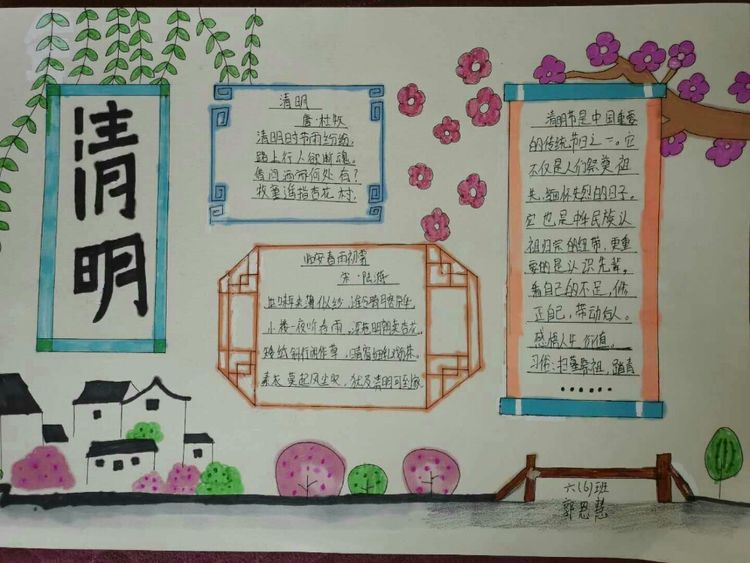 清明
清明
唐·杜牧
清明时节雨纷纷,
路上行人欲断魂。
借问酒家何处有?
牧童遥指杏花村,
临安春雨初霁
宋·陆游
世味年来薄似纱,谁令骑马客京华
小楼一夜听春雨,深巷明朝卖杏花
矮纸斜行闲作草,晴窗细乳戏分茶
素衣莫起风尘叹,犹及清明可到家
清明节是中国重要
的传统节日之一。它
不仅是人们祭奠祖
先,缅怀先烈的日子。
它也是中华民族认
祖归宗的纽带,更重
要的是认识先辈。
看自己的不足,修
正自己,带动后人。
感悟人生价值。
习俗:扫墓祭祖,踏青
......
六(6)班
郭思慧